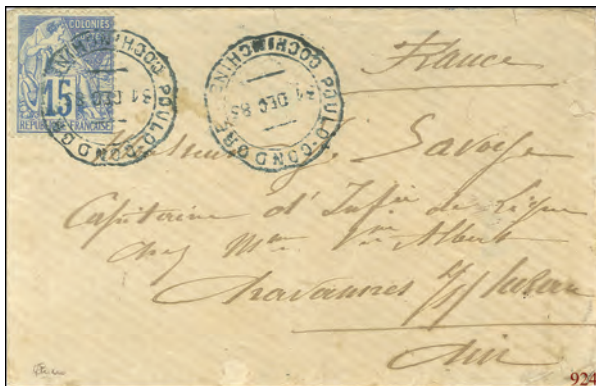 COLONIES
POSTES
15
REPUBLIQUE FRANÇAISE
POULO-CONDORE COCHINCHINE
31 DEC 8
POULO-CONDORE COCHINCHINE
31 DEC 85
France
Monsieur J. Savoye
Capitaine d'Infie de Ligne
chez Mme Vve Albert
Chavannes s/ Suran
Ain
924